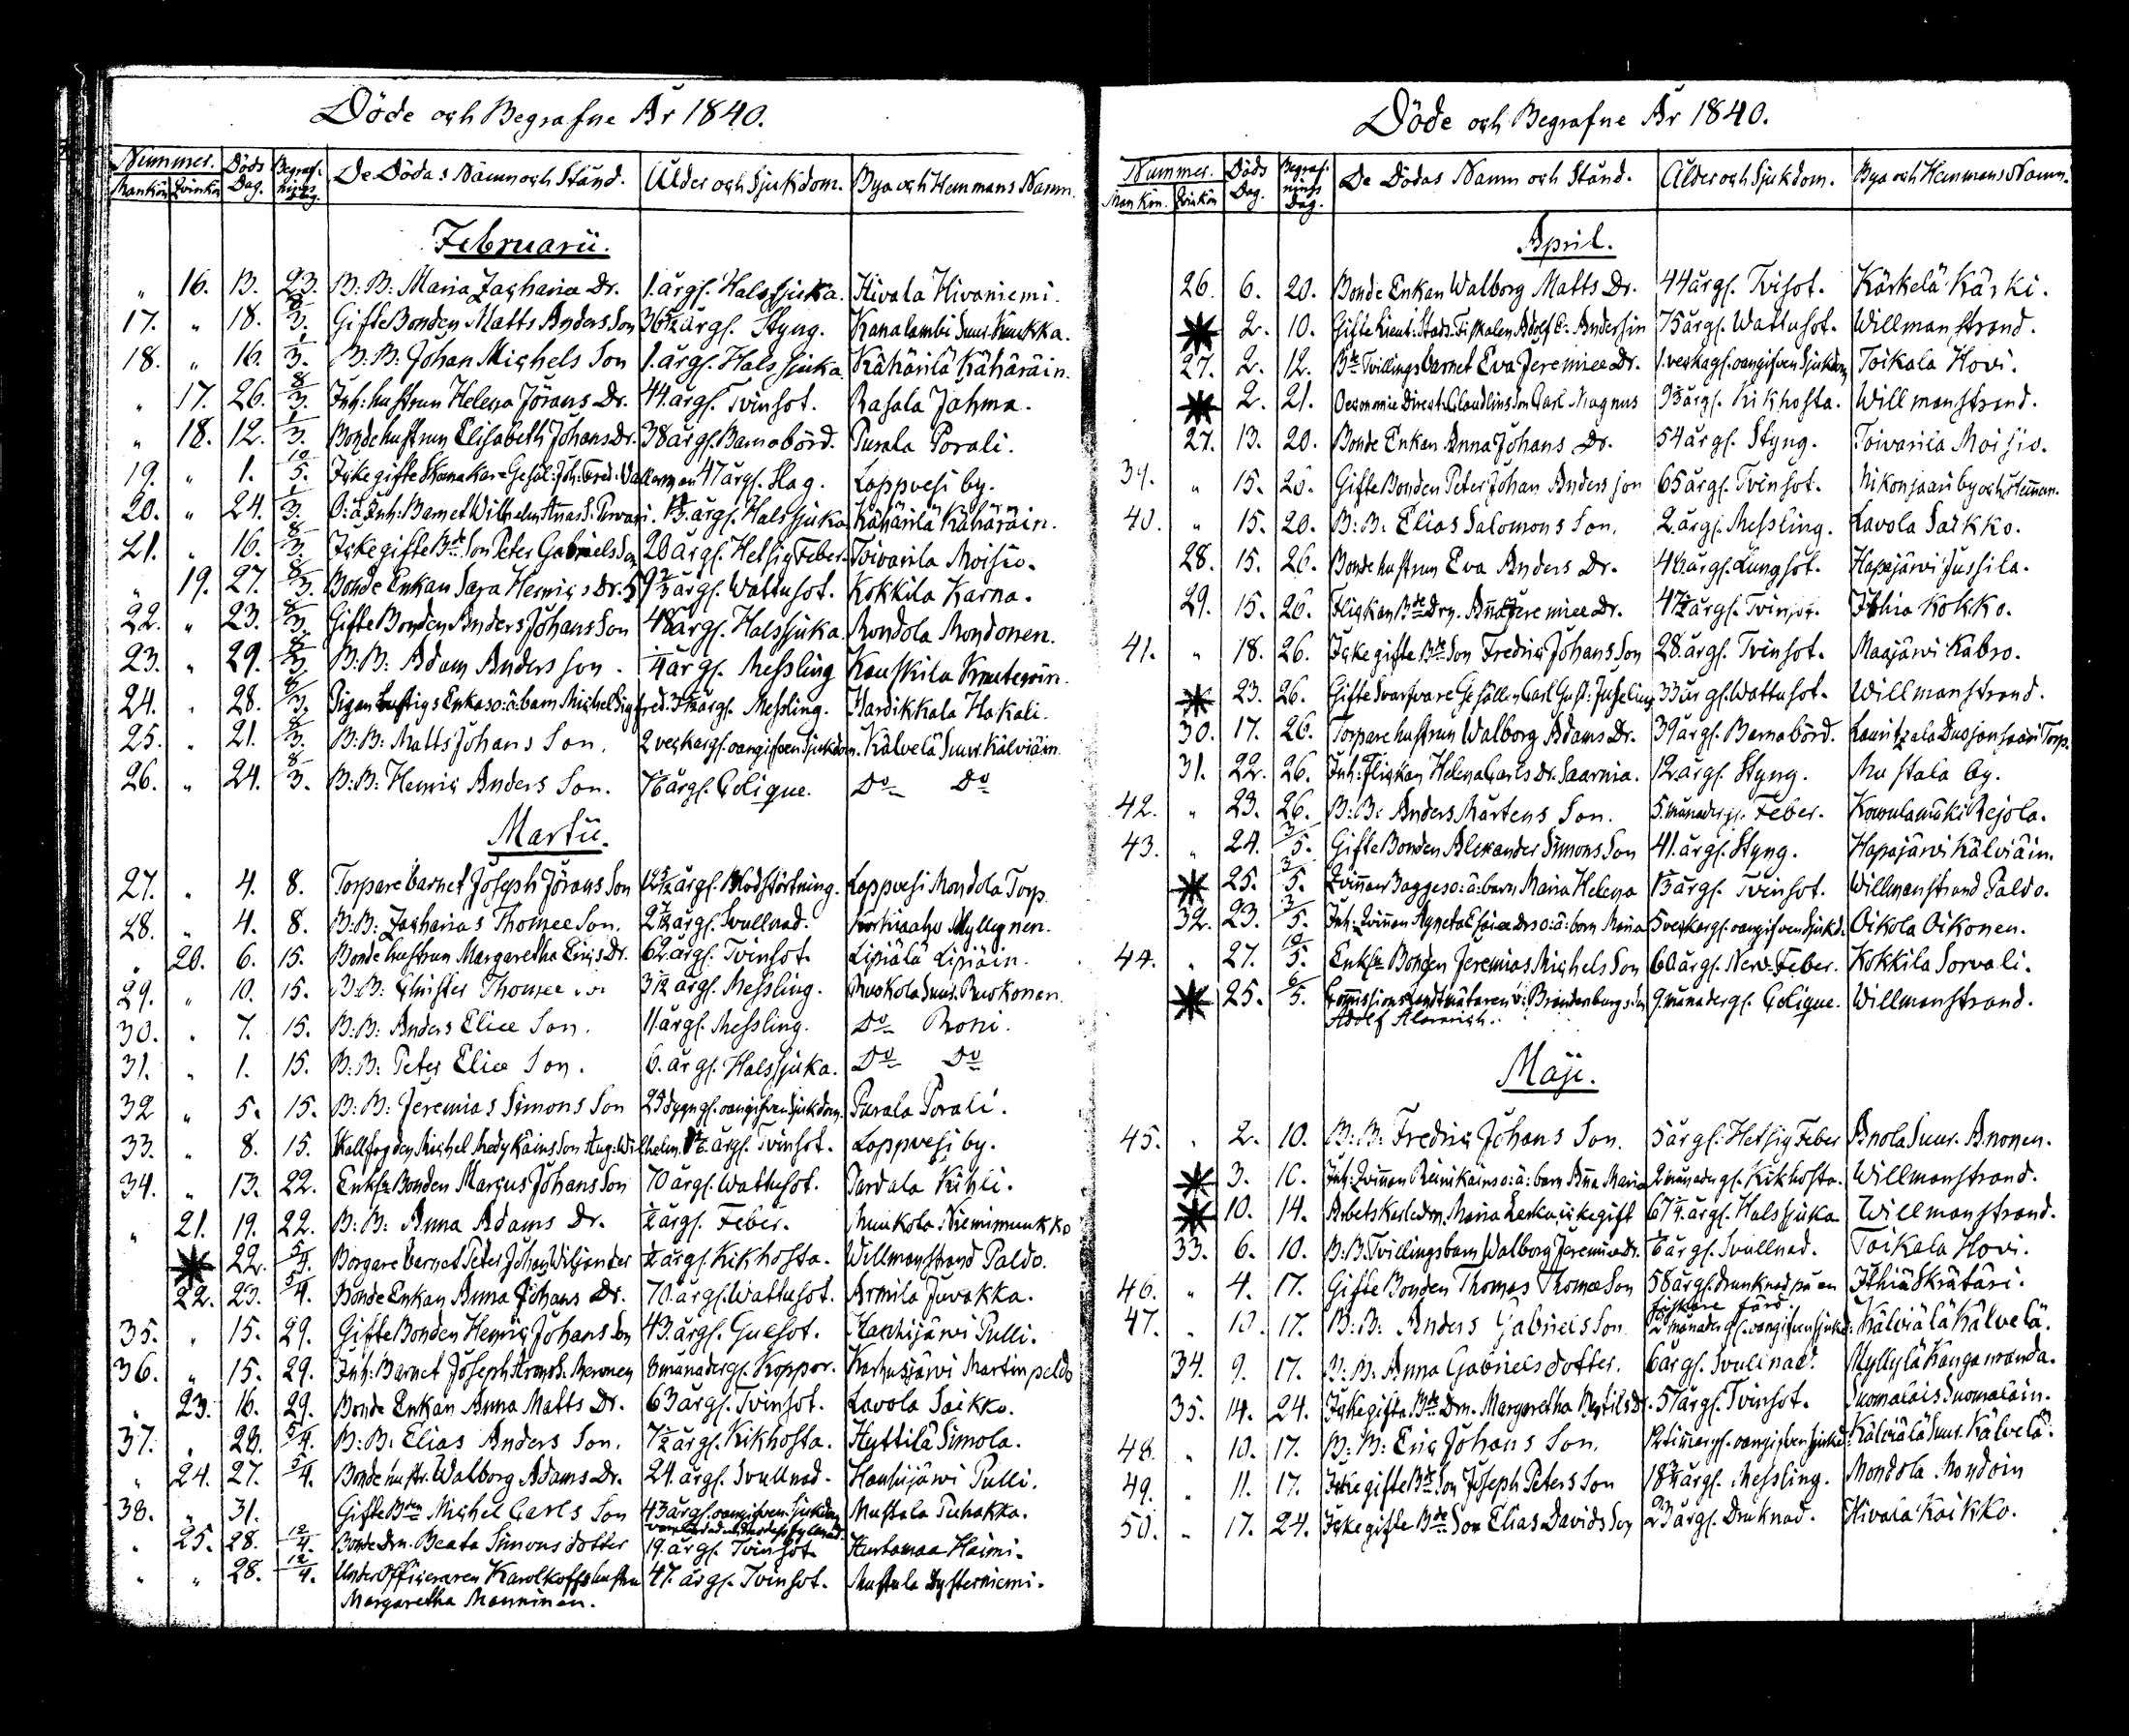 Döde och Begrafne År 1840.
Nummer. Döds Dag. Begrafnings Dag. De Dödas Namn och Stånd. Ålder och Sjukdom. Bya och Hemmans Namn.
Mankön Qvinkön
Februarii.
" 16. 13. 23. B: B: Maria Zachariæ Dr. 1. årgl. Halssjuka. Hivala Hivaniemi.
17. " 18. 8/3. Gifte Bonden Matts Anders Son årgl. Styng. Kanalambi Suur
18. " 16. 1/3. B: B: Johan Michels Son 1. årgl. Halssjuka. Kähärilä Kähäräin.
" 17. 26. 8/3. Inh: hustrun Helena Jörans Dr. 44. årgl. Tvinsot. Rasala Jahma.
" 18. 12. 1/3. Bondehustrun Elisabeth Johans Dr. 38 årgl. Barnsbörd. Purala Porali.
19. " 1. 10/5. Icke gifte 47 årgl. Slag. Loppvesi by.
20. " 24. 1/3. O: ä Inh: Barnet Wilhelm årgl. Halssjuka Kähärilä Kähäräin.
21. " 16. 8/3. Icke gifte Bde Son Peter Gabriels Son 20 årgl. Hetsig Feber. Toivarila Moisio.
" 19. 27. 8/3. Bonde Enkan Sara Henrics Dr. årgl. Wattusot. Kokkila Karna.
22. " 23. 8/3. Gifte Bonden Anders Johans Son 48 årgl. Halssjuka. Mondola Mondonen.
23. " 29. 8/3. B: B: Adam Anders son. 1/4 årgl. Messling Kauskila
24. " 28. 8/3. Pigan Enka o: ä: barn Michel Sigfred. årgl. Messling. Hardikkala Hakali.
25. " 21. 8/3. B: B: Matts Johans Son. 2 veckargl. oangifven Sjukdom. Kälvelä Suur. Kälviäin.
26. " 24. 8/3. B: B: Henric Anders Son. årgl. Colique. Do Do
Martii.
27. " 4. 8. Torpare barnet Joseph Jörans Son årgl. Blodstörtning. Loppvesi Mondola Torp.
28. " 4. 8. B: B: Zacharias Thomæ Son. årgl. Svullnad. Myllynen.
" 20. 6. 15. Bonde hustrun Margaretha Erics Dr. 62. årgl. Tvinsot. Lipiälä Lipiäin.
29. " 10. 15. B: B: Christer Thomæ årgl. Messling. Ruokola Suur. Ruokonen.
30. " 7. 15. B: B: Anders Eliæ Son. 11. årgl. Messling. Do Roni.
31. " 1. 15. B: B: Peter Eliæ Son. 6. årgl. Halssjuka. Do Do
32 " 5. 15. B: B: Jeremias Simons Son 25 dygngl. oangifven Sjukdom. Purala Porali.
33. " 8. 15. Wallfogden Michel Medykäins Son Aug: Wilhelm. årgl. Tvinsot. Loppvesi by.
34. " 13. 22. Enkl: Bonden Marcus Johans Son 70 årgl. Wattusot. Pardala Kihli.
" 21. 19. 22. B: B: Anna Adams Dr. 1/2 årgl. Feber. Munkola Niemimunkko
22. 5/4. Borgare barnet Peter Johan Wiljander 1/2 årgl. Kikhosta. Willmanstrand Paldo.
22. 23. 5/4. Bonde Enkan Anna Johans Dr. 70. årgl. Wattusot. Armila Juvakka.
35. " 15. 29. Gifte Bonden Henric Johans Son 43. årgl. Gulsot. Hanhijärwi Pulli.
36. " 15. 29. Inh: Barnet Joseph 3 månadergl. Koppor. Karhusjärwi Martinpeldo
" 23. 16. 29. Bonde Enkan Anna Matts Dr. 63 årgl. Tvinsot. Lavola Saikko.
37. " 23. 5/4. B: B: Elias Anders Son. 7 1/2 årgl. Kikhosta. Hyttilä Simola.
" 24. 27. 5/4. Bonde hustr. Walborg Adams Dr. 24. årgl. Svullnad. Hanhijärwi Pulli.
38. " 31. Gifte Bden Michel Carls Son 43 årgl. oangifven Sjukdom Mustala Puhakka.
" 25. 28. 12/4. Bonde Drn. Beata Simons dotter 19. årgl. Tvinsot. Hurtamaa Haimi.
" " 28. 12/4. Under Officeraren Karolkoffs hustru 47. årgl. Tvinsot. Mustala
Margaretha Manninen.
Döde och Begrafne År 1840.
Nummer. Döds Dag. Begrafnings Dag. De Dödas Namn och Stånd. Ålder och Sjukdom. Bya och Hemmans Namn.
Mankön. Qvinkön
April.
26. 6. 20. Bonde Enkan Walborg Matts Dr. 44 årgl. Tvisot. Kärkelä Kärki.
2. 10. Gifte Lieut: Stads Fiskalen Adolf Andersin 75 årgl. Wattusot. Willmanstrand.
27. 2. 12. Bde Tvillings barnet Eva Jeremiæ Dr. 1. veckagl. oangifven Sjukdom Toikala Hovi.
2. 21. Oeconomie Direct: Claudlins Son Carl Magnus årgl. Kikhosta. Willmanstrand.
27. 13. 20. Bonde Enkan Anna Johans Dr. 54 årgl. Styng. Toivarila Moisio.
34. " 15. 26. Gifte Bonden Peter Johan Anders son 65 årgl. Tvinsot. Nikonsaari by och Hemman.
40. " 15. 20. B: B: Elias Salomons Son. 2 årgl. Messling. Lavola Saikko.
28. 15. 26. Bonde hustrun Eva Anders Dr. 46 årgl. Lungsot. Hapajärwi Jussila.
29. 15. 26. Flickan Bde Drn. Anna Jeremiæ Dr. årgl. Tvinsot. Ihhia Kokko.
41. " 18. 26. Icke gifte Bde Son Fredric Johans Son 28. årgl. Tvinsot. Maajärwi Kabro.
23. 26. Gifte Svarfvare Gesällen Carl Gust: Juselius 33 årgl. Wattusot. Willmanstrand.
30. 17. 26. Torpare hustrun Walborg Adams Dr. 39 årgl. Barnsbörd. Lauritzala Torp.
31. 22. 26. Inh: Flickan Helena Carls Dr. Saarnia. 12. årgl. Styng. Mustala by.
42. " 23. 26. B: B: Anders Mårtens Son. 5. månadergl. Feber. Rejola.
43. " 24. 3/5. Gifte Bonden Alexander Simons Son 41. årgl. Styng. Hapajärwi Kälviäin.
25. 3/5. Qvinnan Bagges o: ä: barn Maria Helena årgl. Tvinsot. Willmanstrand Paldo.
32. 23. 3/5. Inh: Qvinnan Agneta Esaiæ drs o: ä: barn Maria 5 veckargl. oangifven Sjukd. Oikola Oikonen.
44. " 27. 10/5. Enkl: Bonden Jeremias Michels Son 60 årgl. Nerv. Feber. Kokkila Sorvali.
25. 6/5. Commissions Landtmätaren v: Brandenburgs Son 9. månadergl. Colique. Willmanstrand.
Adolf
Maji.
45. " 2. 10. B: B: Fredric Johans Son. 5 årgl. Hetsig Feber Anola Suur. Anonen.
3. 10. Inh: Qvinnan Reinikäins o: ä: barn Anna Maria 2 månadergl. Kikhosta. Willmanstrand.
10. 14. Arbets Karls drn. Maria Leska, icke gift årgl. Halssjuka Willmanstrand.
33. 6. 10. B: B: Tvillingsbarn Walborg Jeremiæ Dr. årgl. Svullnad. Toikala Hovi.
46. " 4. 17. Gifte Bonden Thomas Thomæ Son 58 årgl. drunknad på en Ihhiä Skrätäri.
fiskare färd.
47. " 10. 17. B: B: Anders Gabriels Son månadergl. oangifven sjukd: Kälviälä Kälvelä.
34. 9. 17. B: B: Anna Gabriels dotter. 6 årgl. Svullnad. Myllylä Kangasmanda.
35. 14. 24. Icke gifta Bde Drn. Margaretha Bertils Dr. 57 årgl. Tvinsot. Suomalais Suomaläin.
48. " 10. 17. B: B: Eric Johans Son. 12 timmargl. oangifven sjukd: Kälviälä Suur. Kälvelä.
49. " 11. 17. Icke gifte Bde Son Joseph Peters Son årgl. Messling. Mondola Mondoin
50. " 17. 24. Icke gifte Bde Son Elias Davids Son 23 årgl. Druknad. Hivala Kaikko.